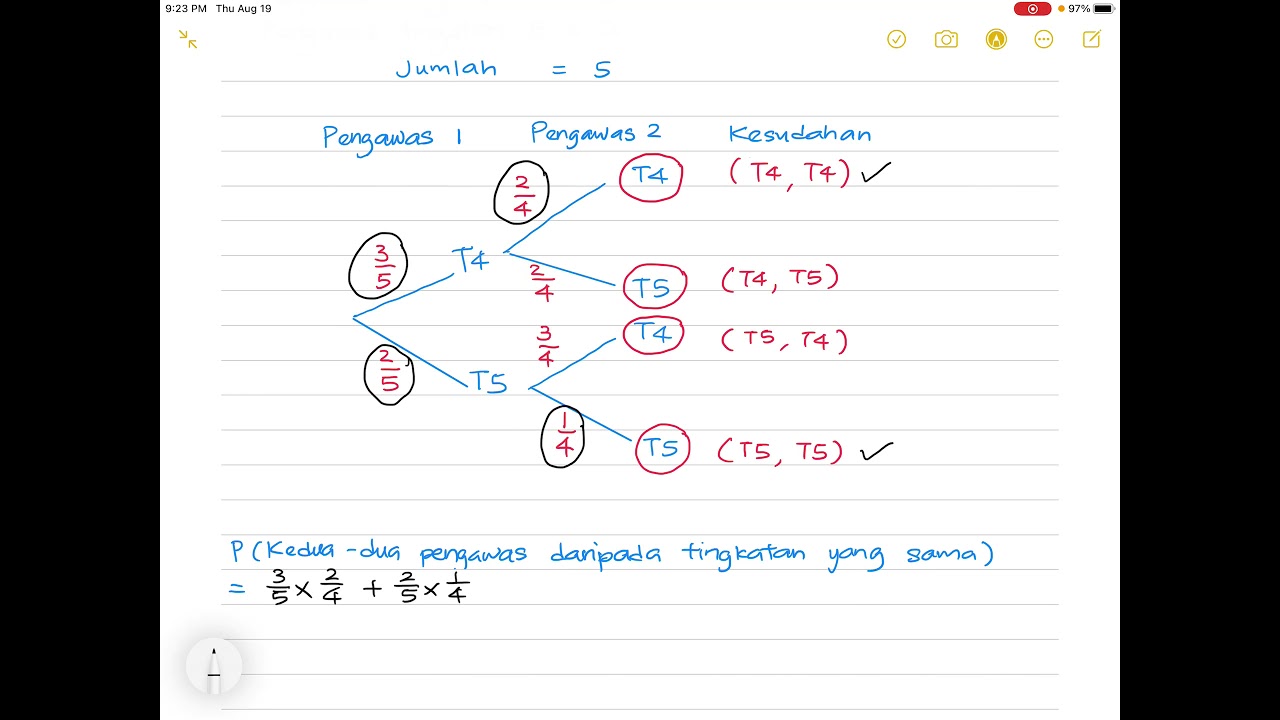 9:23 PM Thu Aug 19 97%
Jumlah = 5
Pengawas 1 Pengawas 2 Kesudahan
2/4 T4 (T4, T4) ✓
3/5 T4
2/4 T5 (T4, T5)
3/4 T4 (T5, T4)
2/5 T5
1/4 T5 (T5, T5) ✓
P (Kedua-dua pengawas daripada tingkatan yang sama)
= 3/5 × 2/4 + 2/5 × 1/4